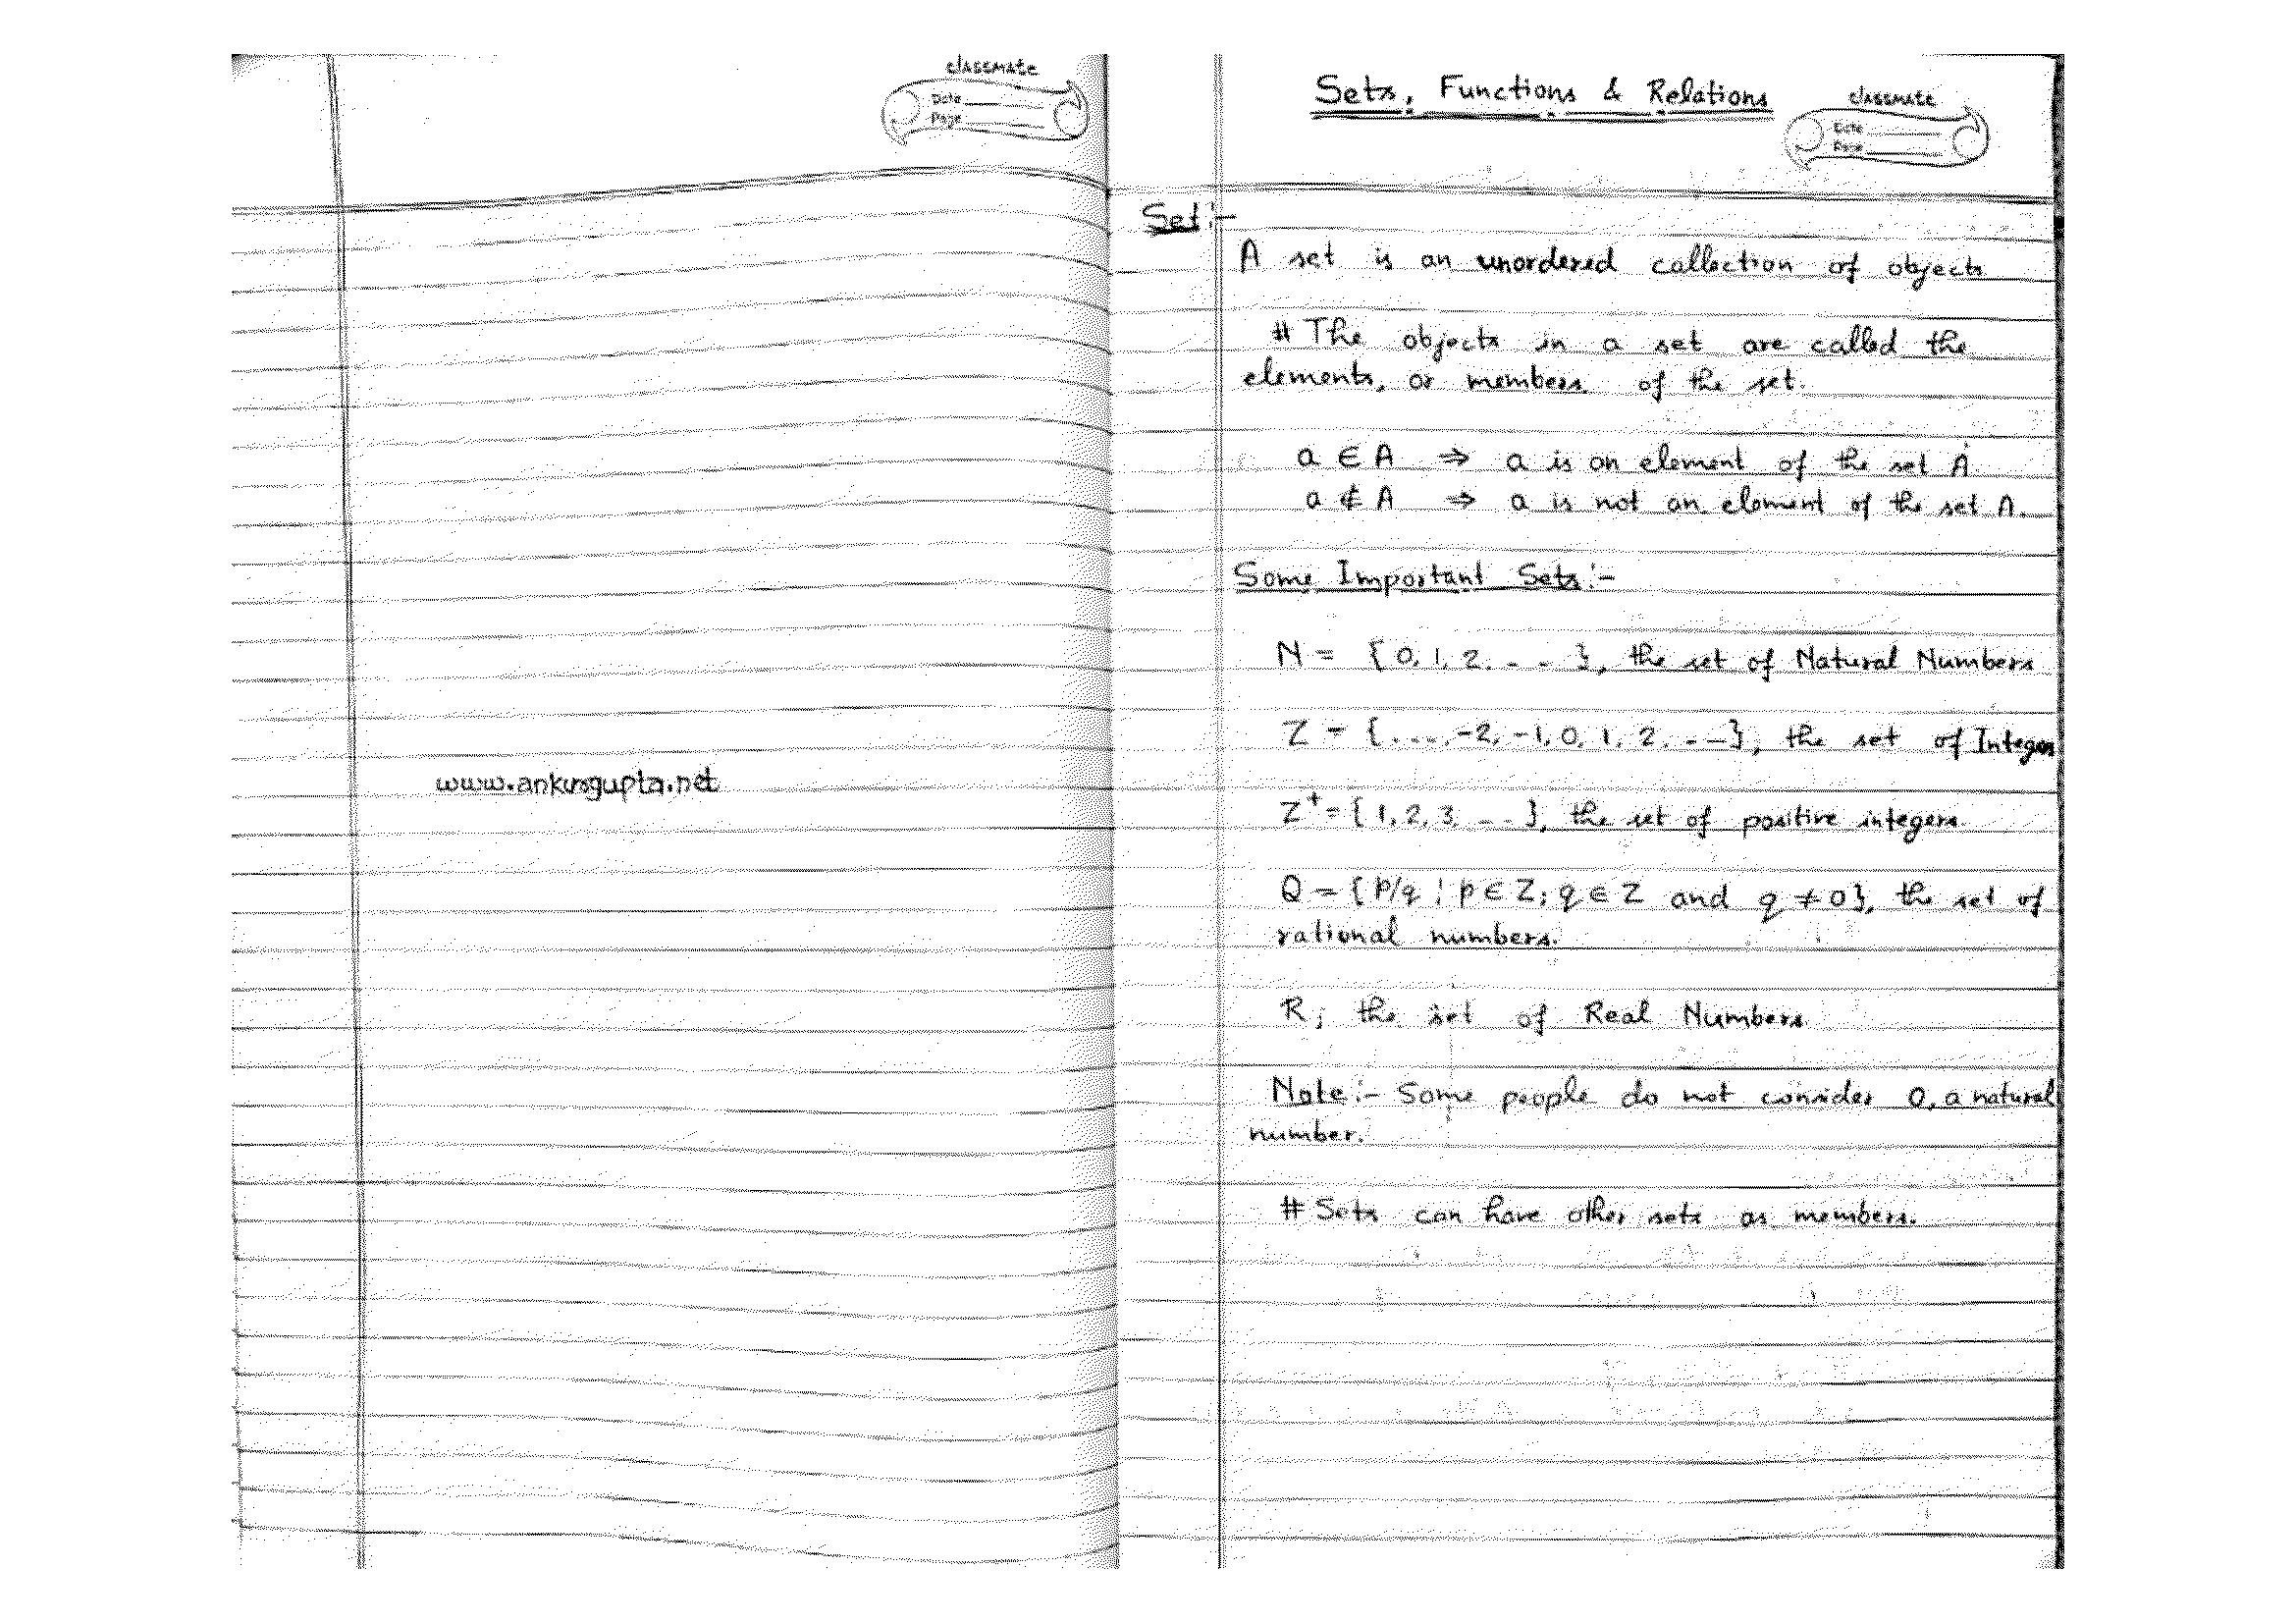 classmate
Date
Page
www.ankurgupta.net
Sets, Functions & Relations
classmate
Date
Page
Set:-
A set is an unordered collection of objects
# The objects in a set are called the
elements, or members of the set.
a ∈ A ⇒ a is an element of the set A
a ∉ A ⇒ a is not an element of the set A.
Some Important Sets:-
N = {0, 1, 2, - - }, the set of Natural Numbers
Z = {...., -2, -1, 0, 1, 2, - -}, the set of Integers
Z⁺ = {1, 2, 3, - - }, the set of positive integers
Q = {p/q | p ∈ Z; q ∈ Z and q ≠ 0}, the set of
rational numbers.
R; the set of Real Numbers
Note:- Some people do not consider 0, a natural
number.
# Sets can have other sets as members.